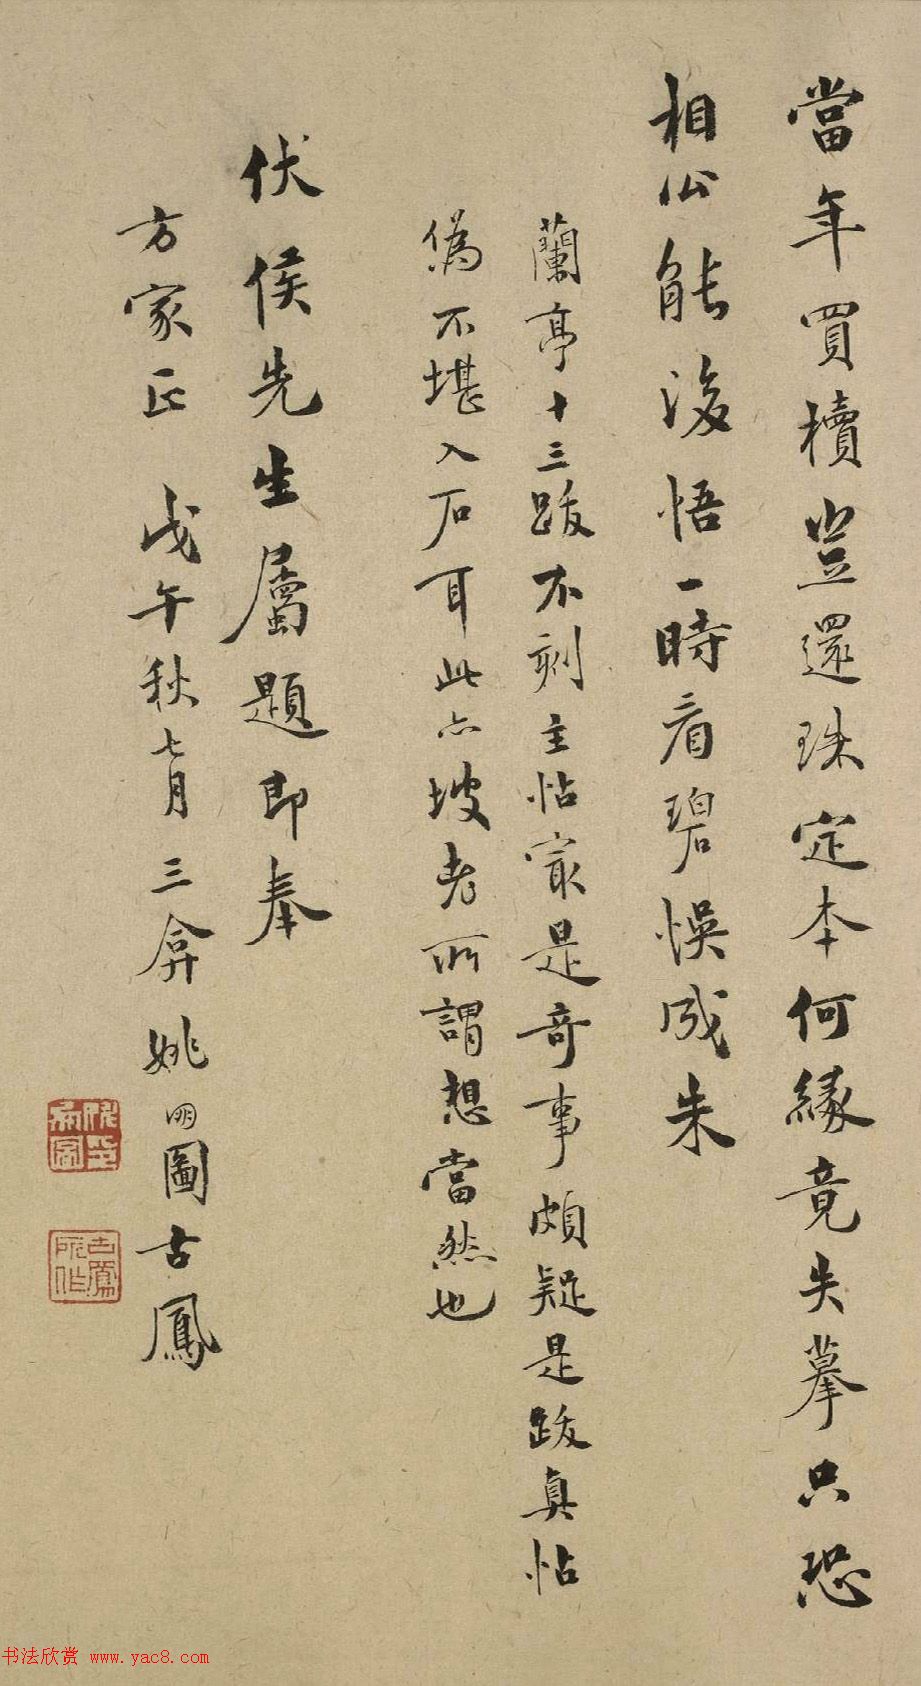 當年買櫝豈還珠定本何緣竟失摹只恐
相公能後悟一時看碧悞成朱
蘭亭十三跋不刻主帖寂是奇事頗疑是跋真帖
偽不堪入石耳此亦坡老所謂想當然也
伏侯先生屬題即奉
方家正 戊午秋七月三弇姚朙圖古鳳
书法欣赏 www.yac8.com